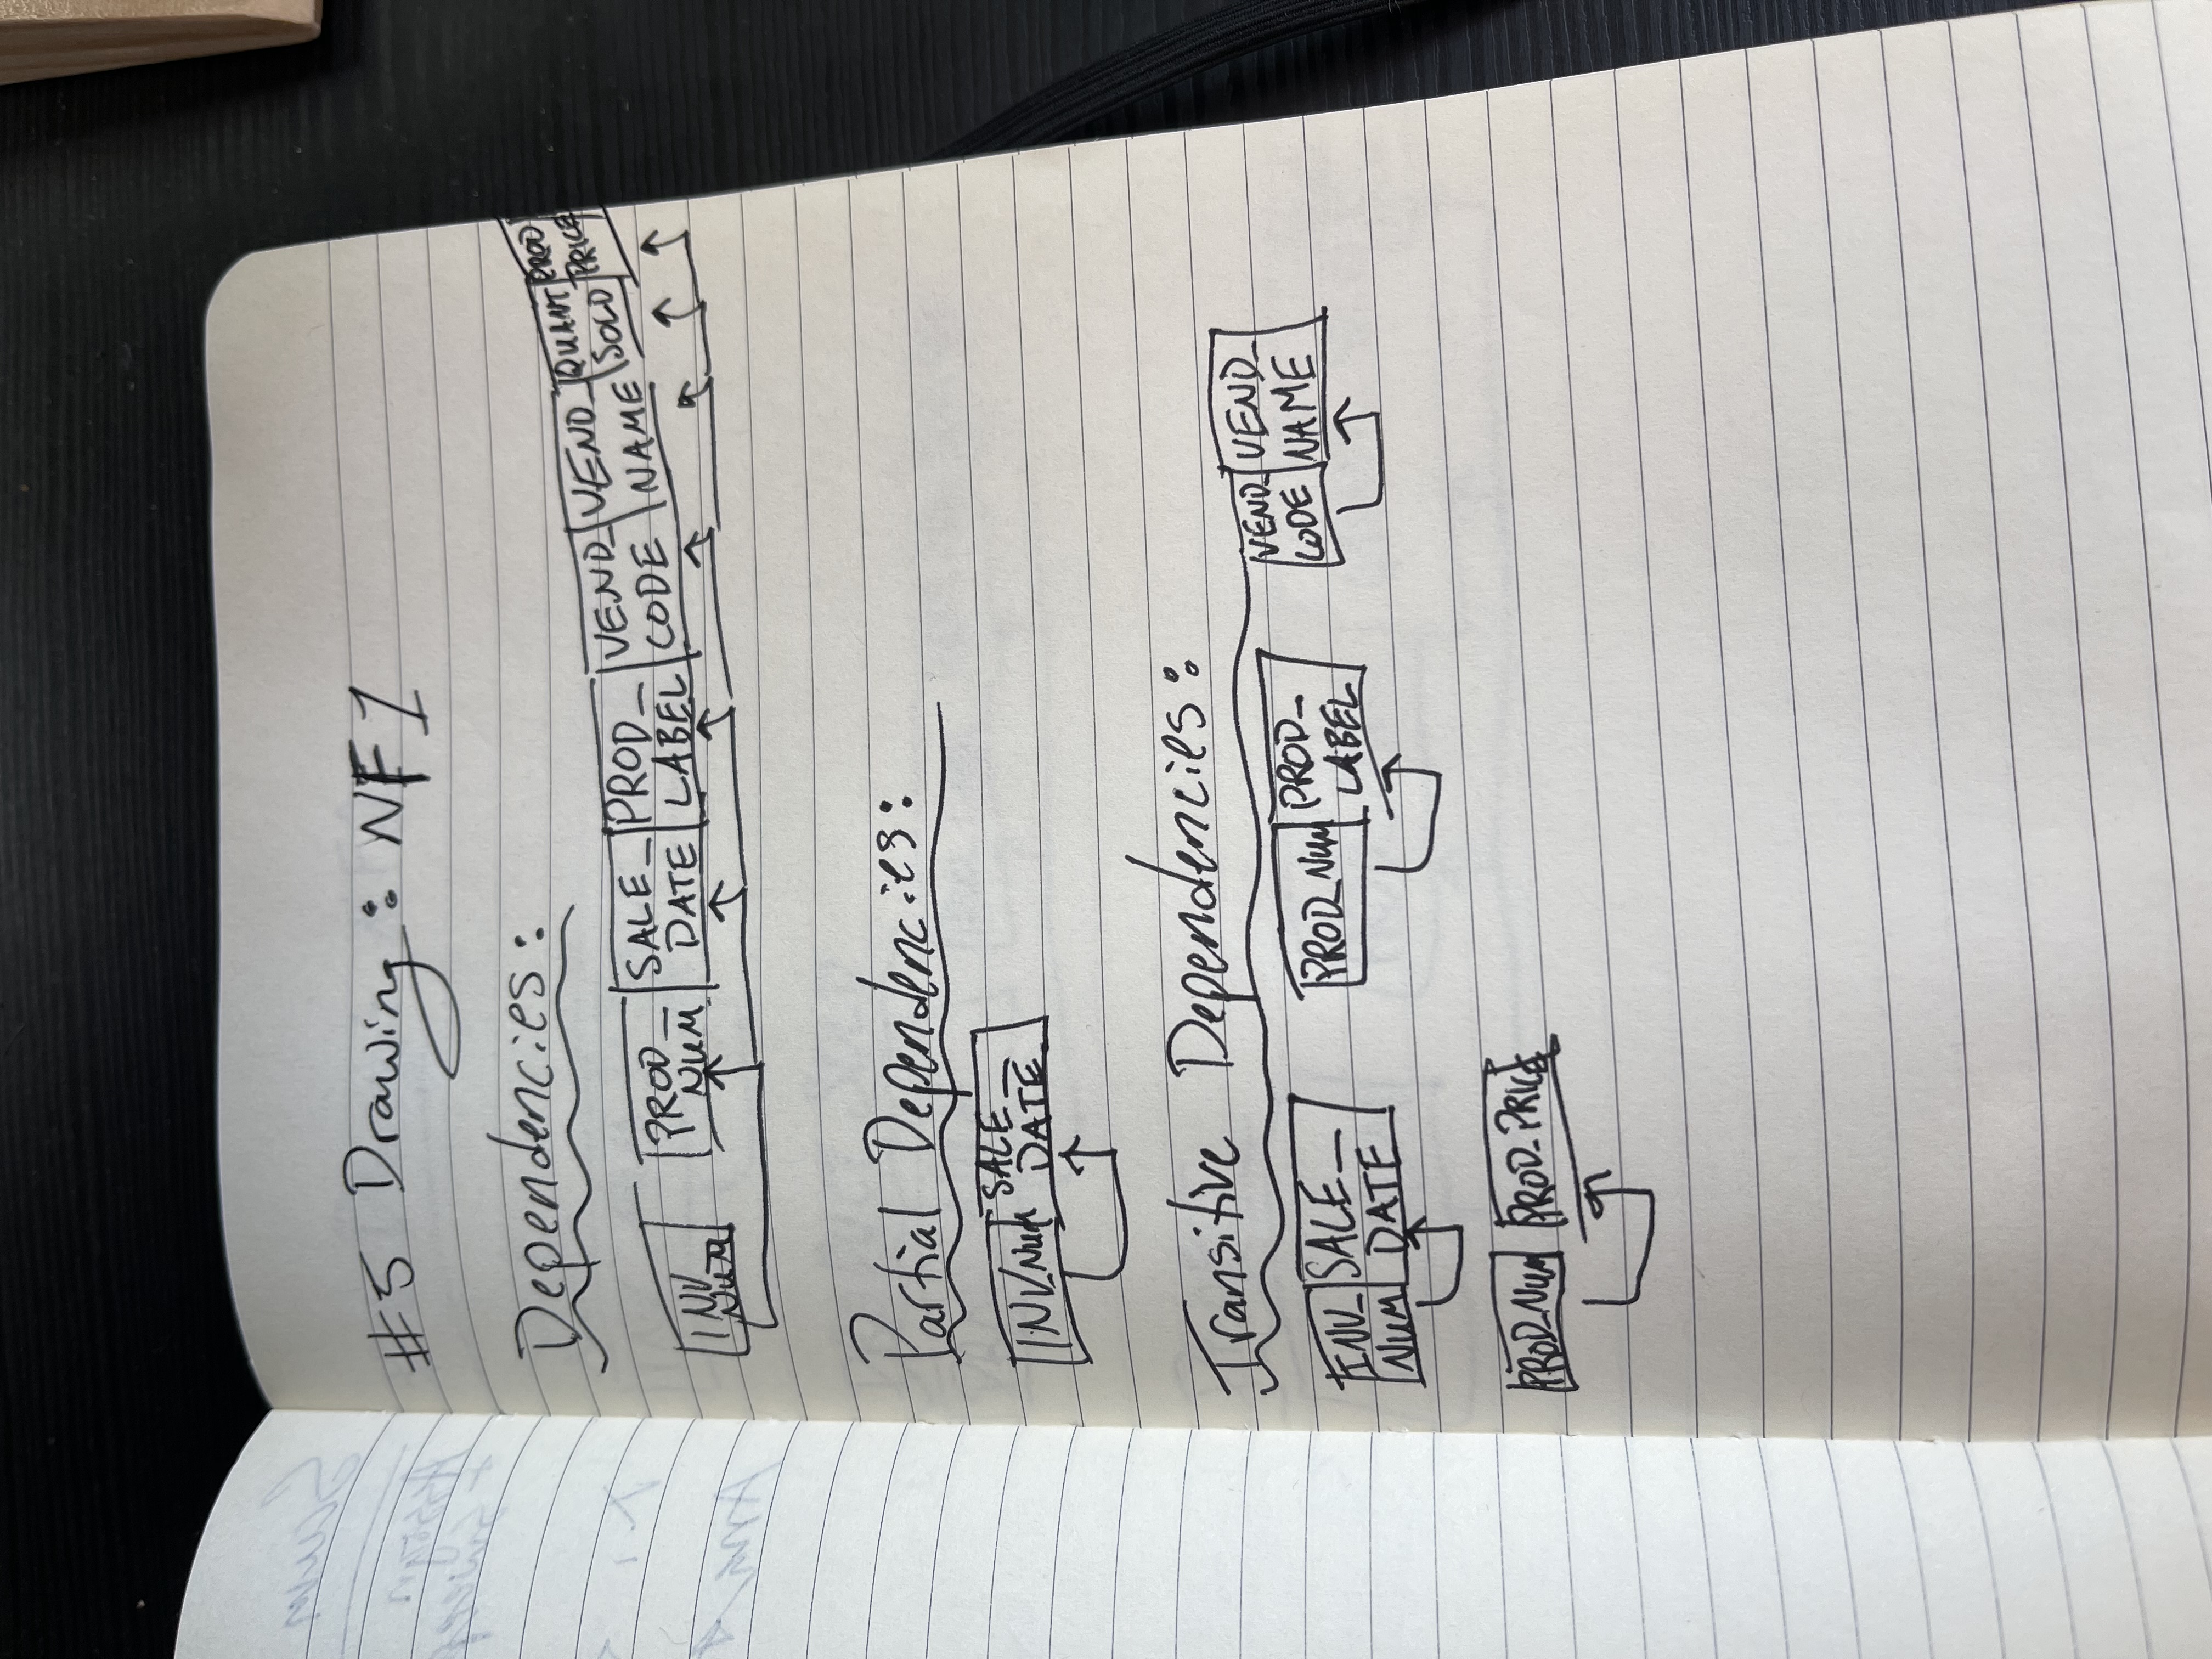 #5 Drawing: NF1
Dependencies:
INV_ NUM PROD_ NUM SALE_ DATE PROD_ LABEL VEND_ CODE VEND_ NAME QUANT SOLD PROD PRICE
Partial Dependencies:
INV_NUM SALE_ DATE
Transitive Dependencies:
INV_ NUM SALE_ DATE PROD_NUM PROD_ LABEL VEND_ CODE VEND_ NAME
PROD_NUM PROD_PRICE